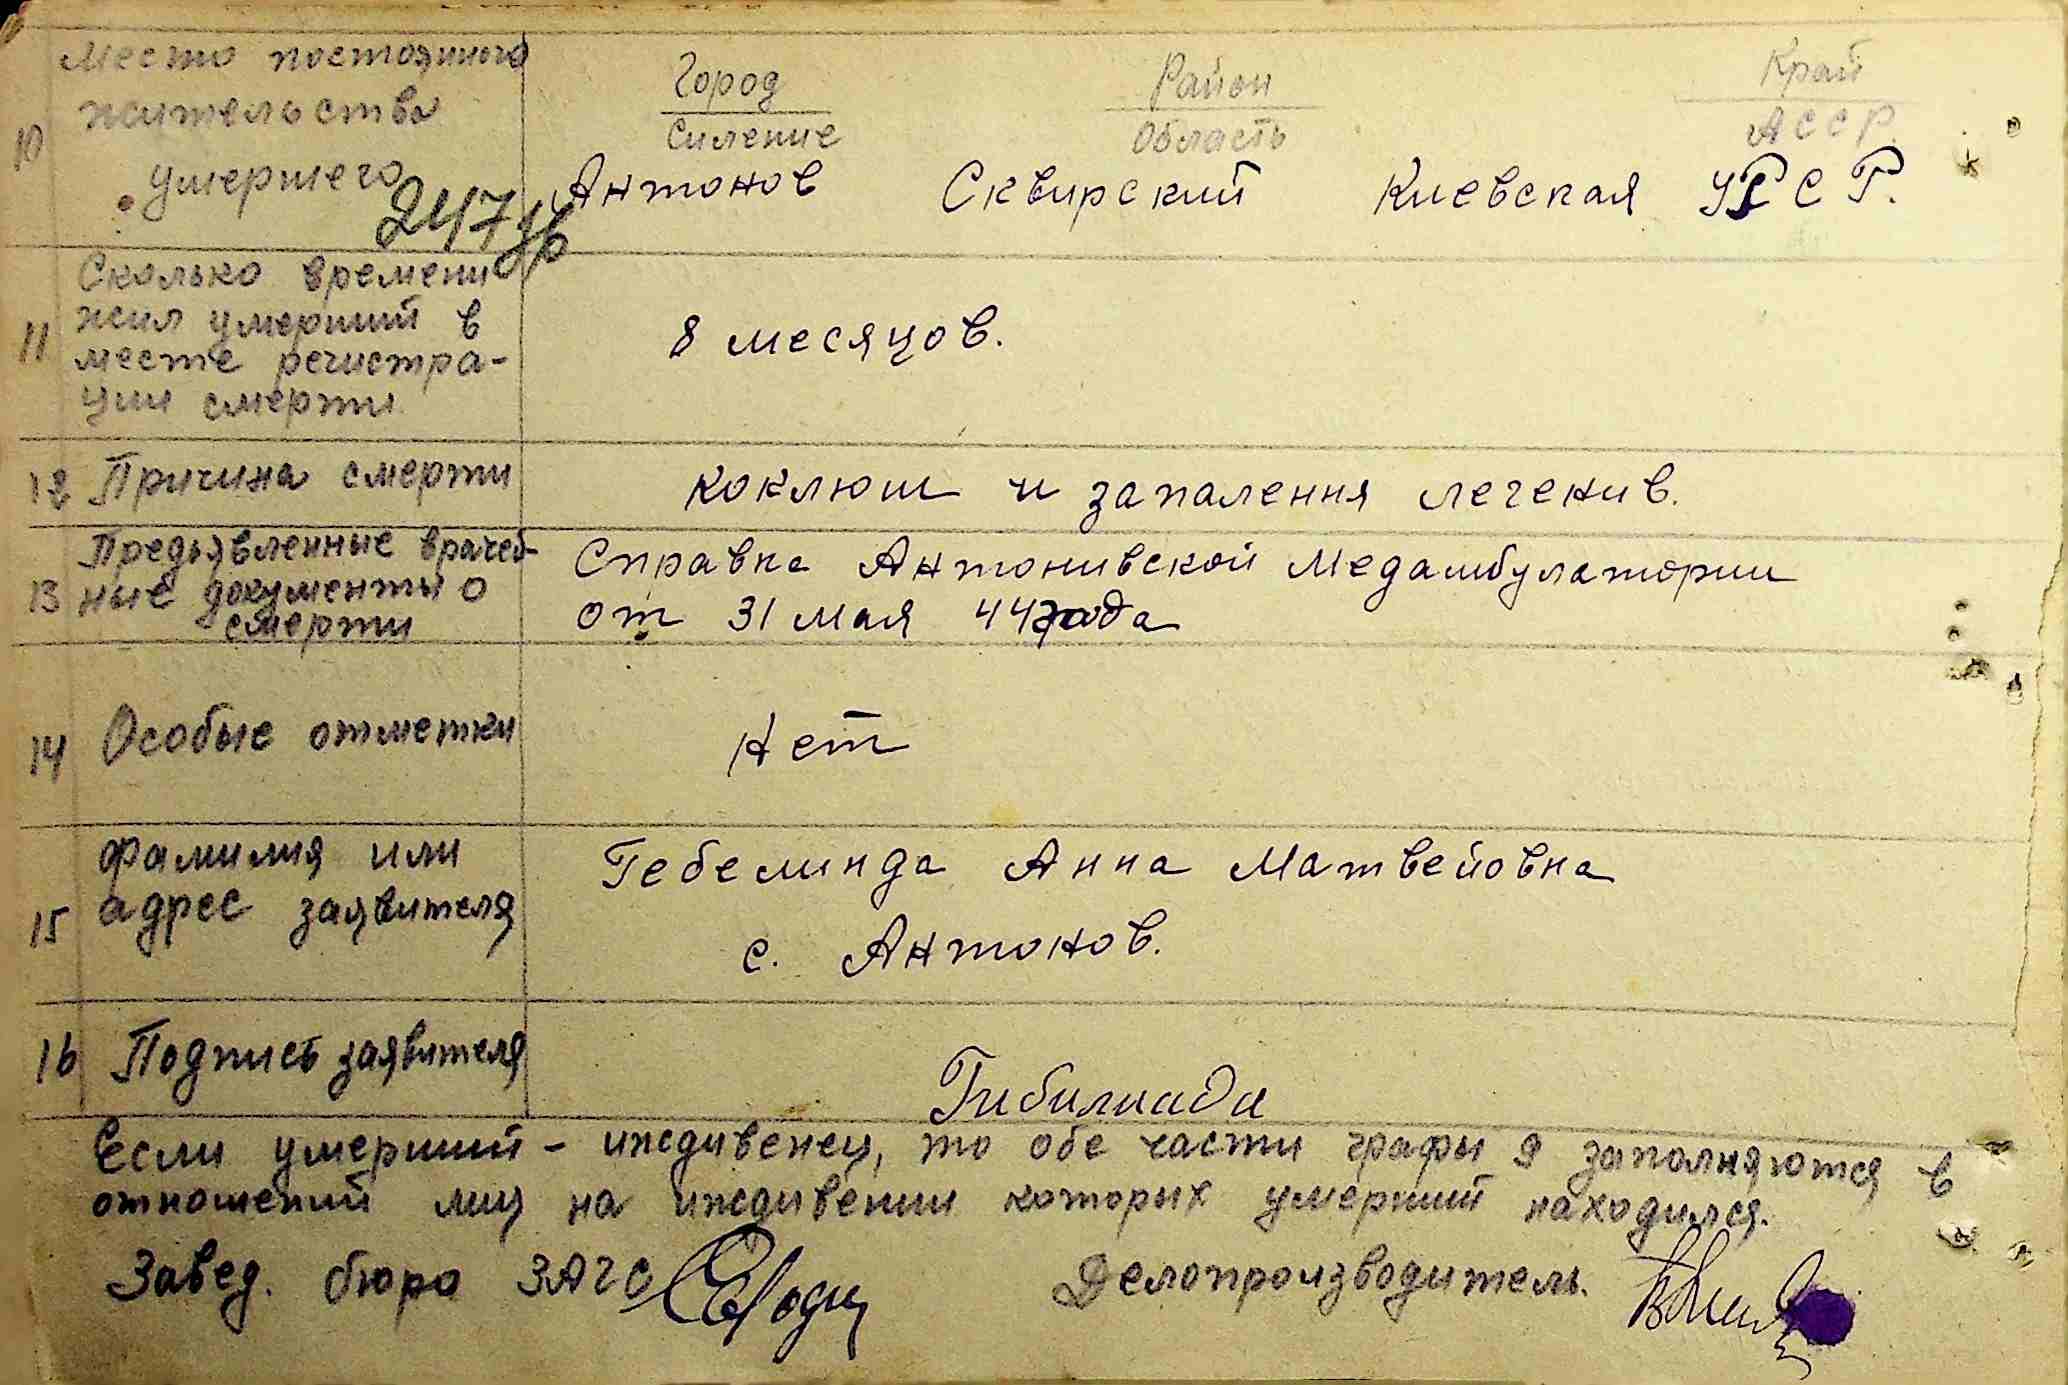 10 Место постоянного
жительства
умершего
Город Район Край
Силение Область АССР.
Антонов Сквирский Киевская УРСР.
247
11 Сколько времени
жил умерший в
месте регистра-
ции смерти
8 месяцов.
12 Причина смерти коклюш и запалення легенив.
13 Предьявленные врачеб-
ные документы о
смерти
Справка Антонивской Медамбулатории
от 31 мая 44 года
14 Особые отметки Нет
15 Фамилия или
адрес заявителя
Гебелинда Анна Матвейовна
с. Антонов.
16 Подпись заявителя
Если умерший - иждивенец, то обе части графы 9 заполняются в
отношений лиц на иждивении которых умерший находился.
Завед. бюро ЗАГС Делопроизводитель.